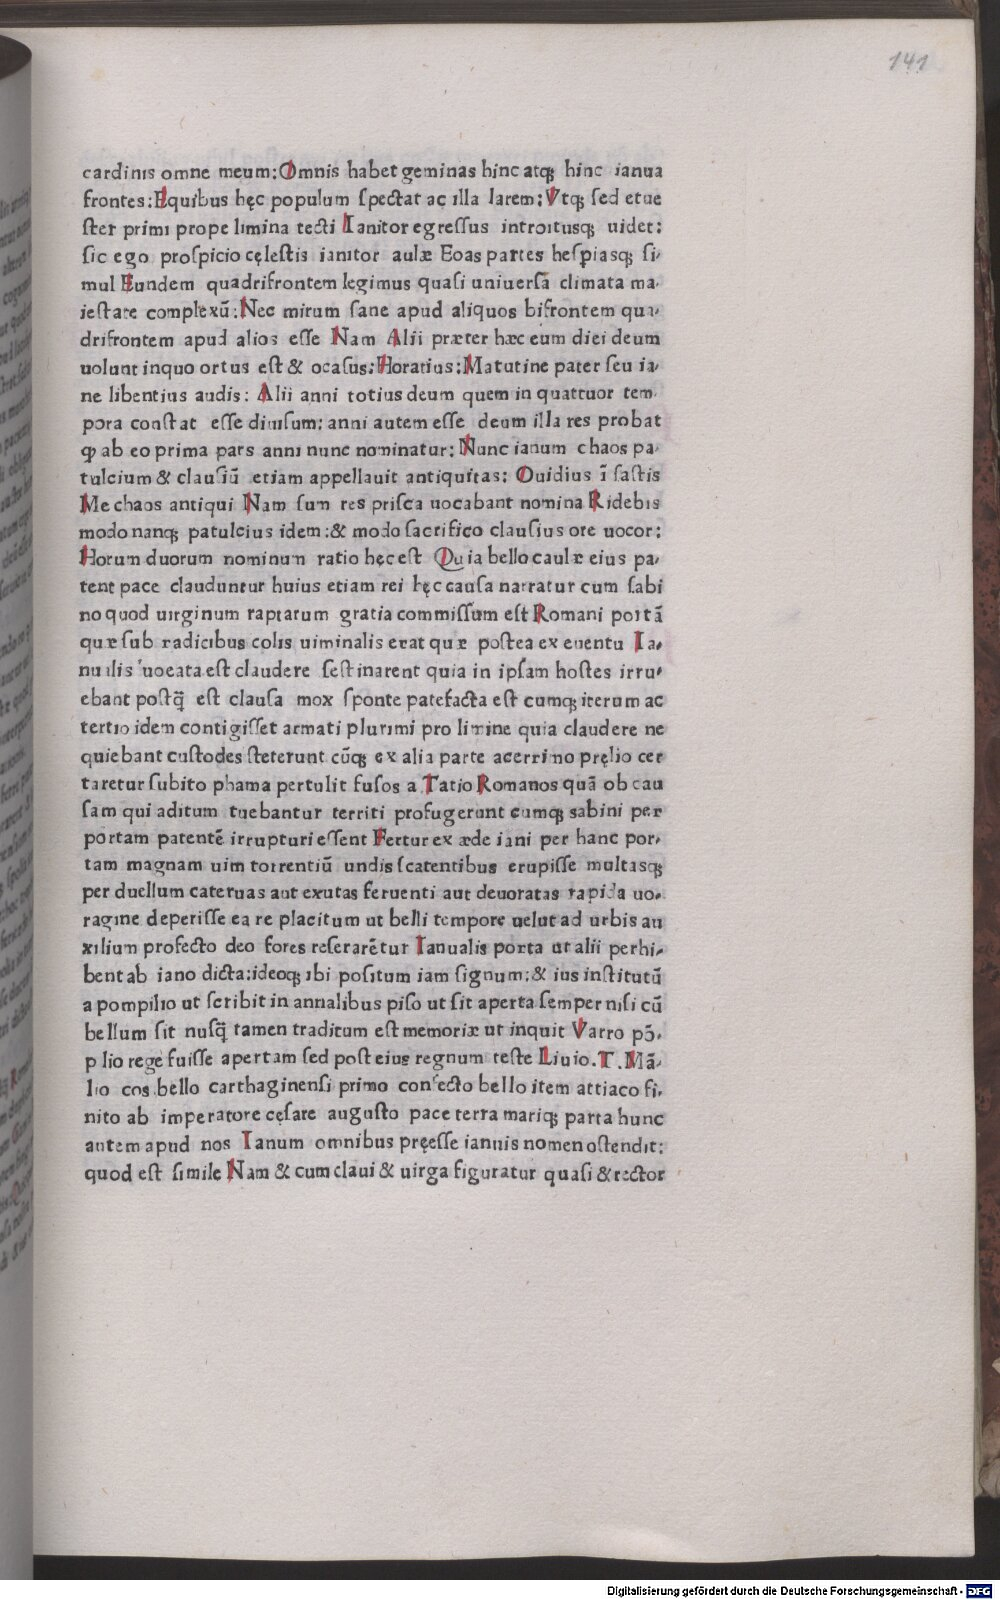 141
cardinis omne meum: Omnis habet geminas hinc atqꝫ hinc ianua
frontes: Equibus hęc populum ſpectat ac illa larem: Vtqꝫ ſed etue
ſter primi prope limina tecti Ianitor egreſſus introitusqꝫ uidet:
ſic ego proſpicio cęleſtis ianitor aulæ Eoas partes heſpiasqꝫ ſi,
mul Eundem quadrifrontem legimus quaſi univerſā climata ma,
ieſtate complexū: Nec mirum ſane apud aliquos bifrontem qua,
drifrontem apud alios eſſe Nam Alii præter hæc eum diei deum
uolunt inquo ortus eſt & ocaſus: Horatius: Matutine pater ſeu ia,
ne libentius audis: Alii anni totius deum quem in quattuor tem
pora conſtat eſſe diuiſum: anni autem eſſe deum illa res probat
ꝙ ab eo prima pars anni nunc nominatur: Nunc ianum chaos pa,
tulcium & clauſiū etiam appellauit antiquitas: Ouidius ī faſtis
Me chaos antiqui Nam ſum res priſca uocabant nomina Ridebis
modo nanqꝫ patulcius idem: & modo ſacrifico clauſius ore uocor:
Horum duorum nominum ratio hęc eſt Quia bello caulæ eius pa,
tent pace clauduntur huius etiam rei hęc cauſa narratur cum ſabi
no quod uirginum raptarum gratia commiſſum eſt Romani portā
quæ ſub radicibus colis uiminalis erat quæ poſtea ex euentu Ia,
nuilis uoeata eſt claudere feſtinarent quia in ipſam hoſtes irru,
ebant poſtꝗ̄ eſt clauſa mox ſponte patefacta eſt cumqꝫ iterum ac
tertio idem contigiſſet armati plurimi pro limine quia claudere ne
quiebant cuſtodes ſteterunt cūqꝫ ex alia parte acerrimo pręlio cer
taretur ſubito phama pertulit fuſos a Tatio Romanos quā ob cau
ſam qui aditum tuebantur territi profugerunt cumqꝫ sabini per
portam patentē irrupturi eſſent Fertur ex æde iani per hanc por,
tam magnam uim torrentiū undis ſcatentibus erupiſſe multasqꝫ
per duellum cateruas aut exutas feruenti aut deuoratas rapida uo,
ragine deperiſſe ea re placitum ut belli tempore uelut ad urbis au
xilium profecto deo fores reſerarētur Ianualis porta ut alii perhi,
bent ab iano dicta: ideoqꝫ ibi poſitum iam ſignum: & ius inſtitutū
a pompilio ut ſcribit in annalibus piſo ut ſit aperta ſemper niſi cū
bellum ſit nuſꝗ̄ tamen traditum eſt memoriæ ut inquit Varro pō,
p lio rege fuiſſe apertam sed poſt eius regnum teſte Liuio. T. Mā,
lio cos bello carthaginenſi primo confecto bello item attiaco fi,
nito ab imperatore cęſare auguſto pace terra mariqꝫ parta hunc
autem apud nos Ianum omnibus pręeſſe ianuis nomen oſtendit:
quod eſt ſimile Nam & cum claui & uirga figuratur quaſi & rector
Digitalisierung gefördert durch die Deutsche Forschungsgemeinschaft - DFG